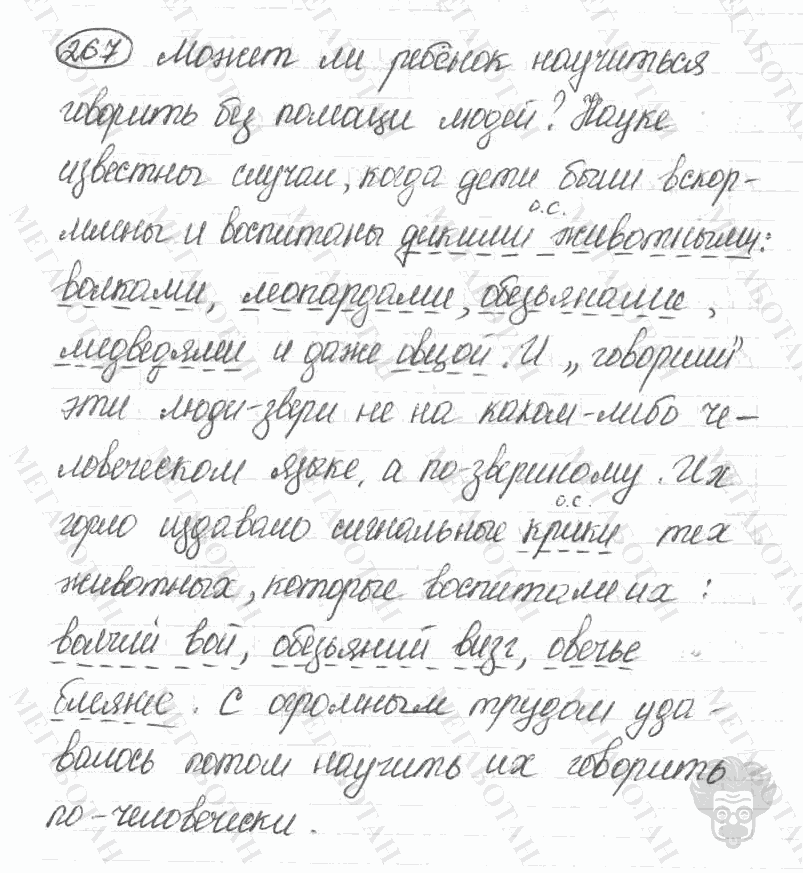 267 Может ли ребёнок научиться
говорить без помощи людей? Науке
известны случаи, когда дети были вскор-
млены и воспитаны дикими животными:
о.с.
волками, леопардами, обезьянами,
медведями и даже овцой. И „говорили"
эти люди-звери не на каком-либо че-
ловеческом языке, а по-звериному. Их
о.с.
горло издавало сигнальные крики тех
животных, которые воспитали их:
волчий вой, обезьяний визг, овечье
блеяние. С огромным трудом уда-
валось потом научить их говорить
по-человечески.
МЕГАБОТАН